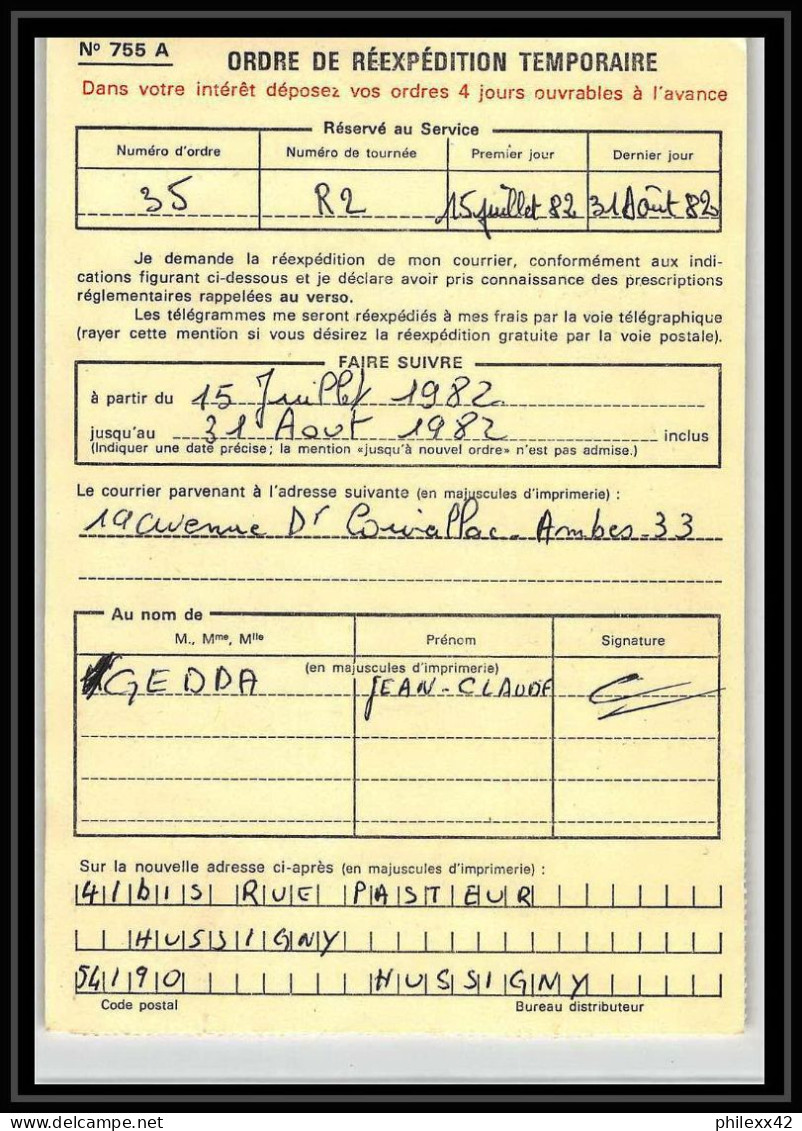 N° 755 A
ORDRE DE RÉEXPÉDITION TEMPORAIRE
Dans votre intérêt déposez vos ordres 4 jours ouvrables à l'avance
Réservé au Service
Numéro d'ordre Numéro de tournée Premier jour Dernier jour
35 R2 15 juillet 82 31 Août 82
Je demande la réexpédition de mon courrier, conformément aux indi-
cations figurant ci-dessous et je déclare avoir pris connaissance des prescriptions
réglementaires rappelées au verso.
Les télégrammes me seront réexpédiés à mes frais par la voie télégraphique
(rayer cette mention si vous désirez la réexpédition gratuite par la voie postale).
FAIRE SUIVRE
à partir du 15 Juillet 1982
jusqu'au 31 Aout 1982 inclus
(Indiquer une date précise; la mention «jusqu'à nouvel ordre» n'est pas admise.)
Le courrier parvenant à l'adresse suivante (en majuscules d'imprimerie) :
avenue Dr Ambes-33
Au nom de
M., Mme, Mlle Prénom Signature
(en majuscules d'imprimerie)
GEDDA JEAN-CLAUDE
Sur la nouvelle adresse ci-après (en majuscules d'imprimerie) :
41bis RUE PASTEUR
HUSSIGNY
54190 HUSSIGNY
Code postal Bureau distributeur
delcampe.net
philexx42